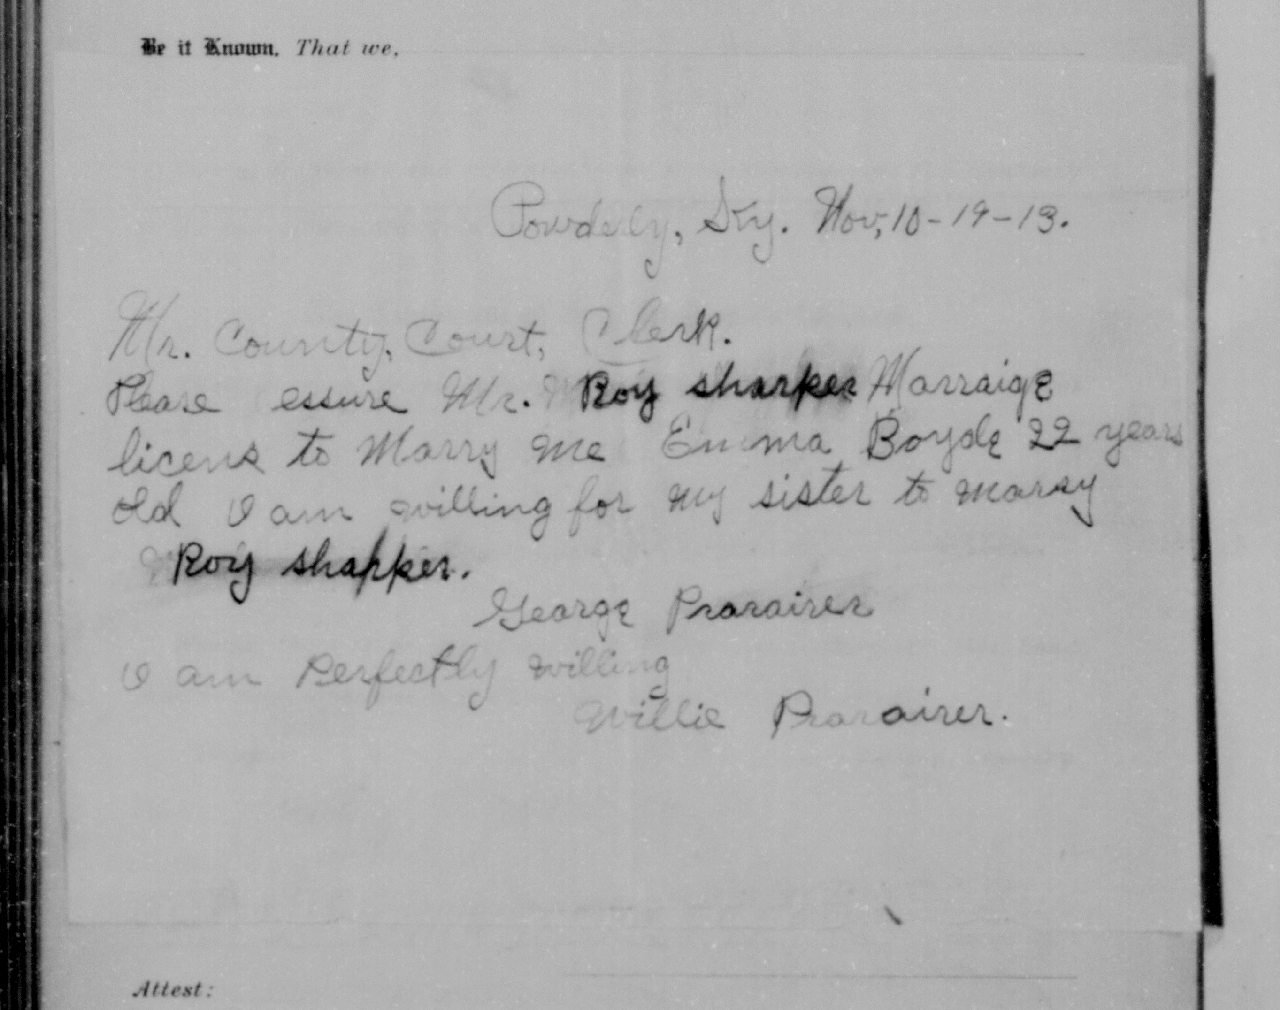 Be it Known, That we,
Powderly, Ky. Nov, 10-19-13.
Mr. County, Court, Clerk.
Please essure Mr. Roy sharker Marraige
licens to Marry me Emma Boyde 22 years
old I am willing for My sister to marry
Roy sharker.
George Prarairer
I am Perfectly willing
Willie Prarairer.
Attest: